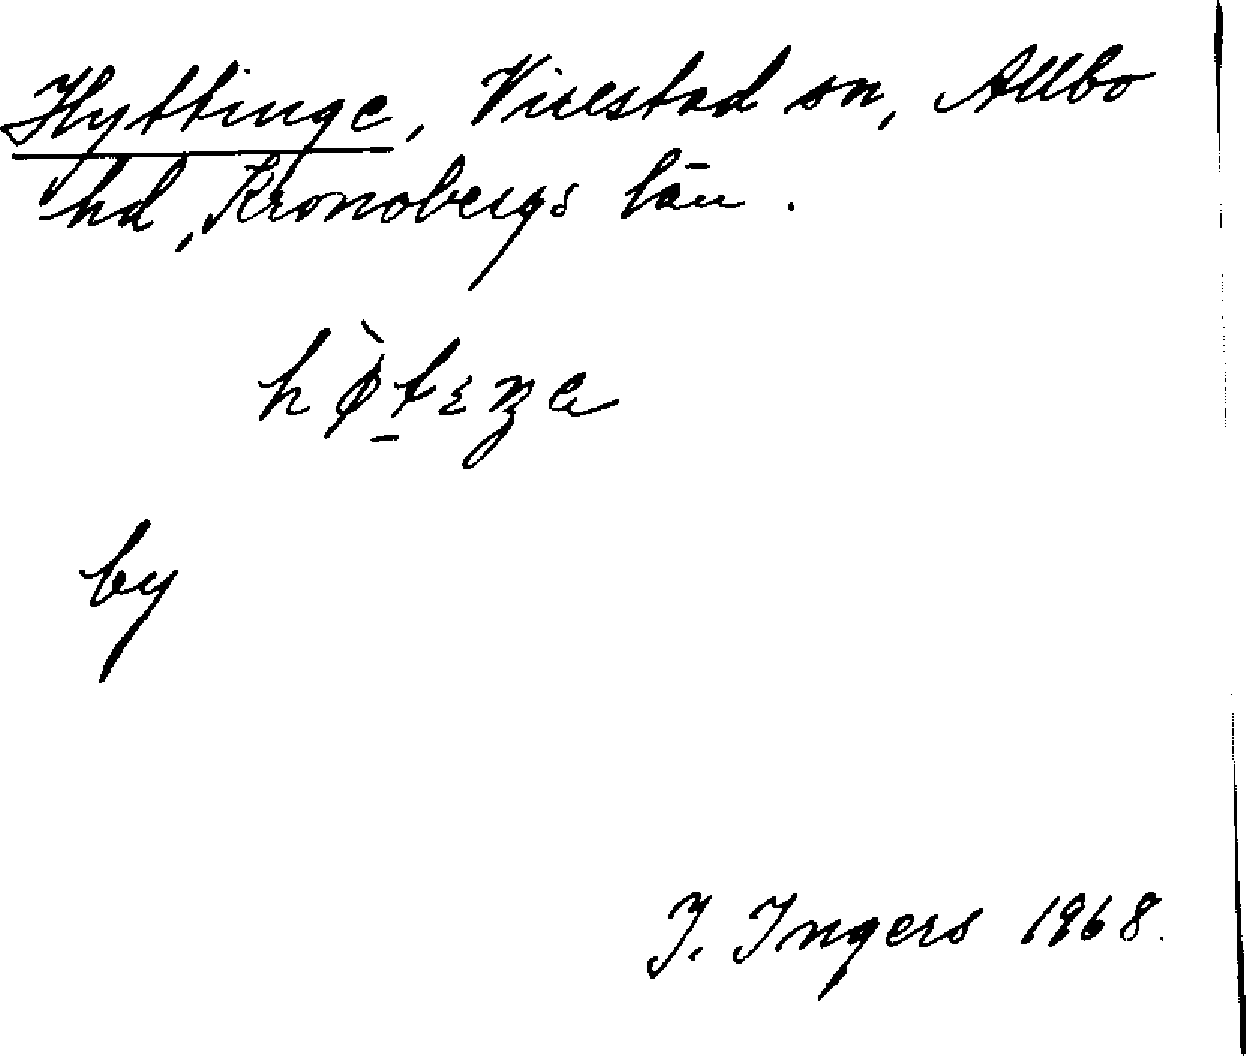 Hyttinge, Virestad sn, Allbo
hd, Kronobergs län.
by
I. Ingers 1968.